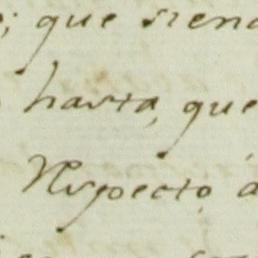 ; que siend
hasta, que
Respecto, a